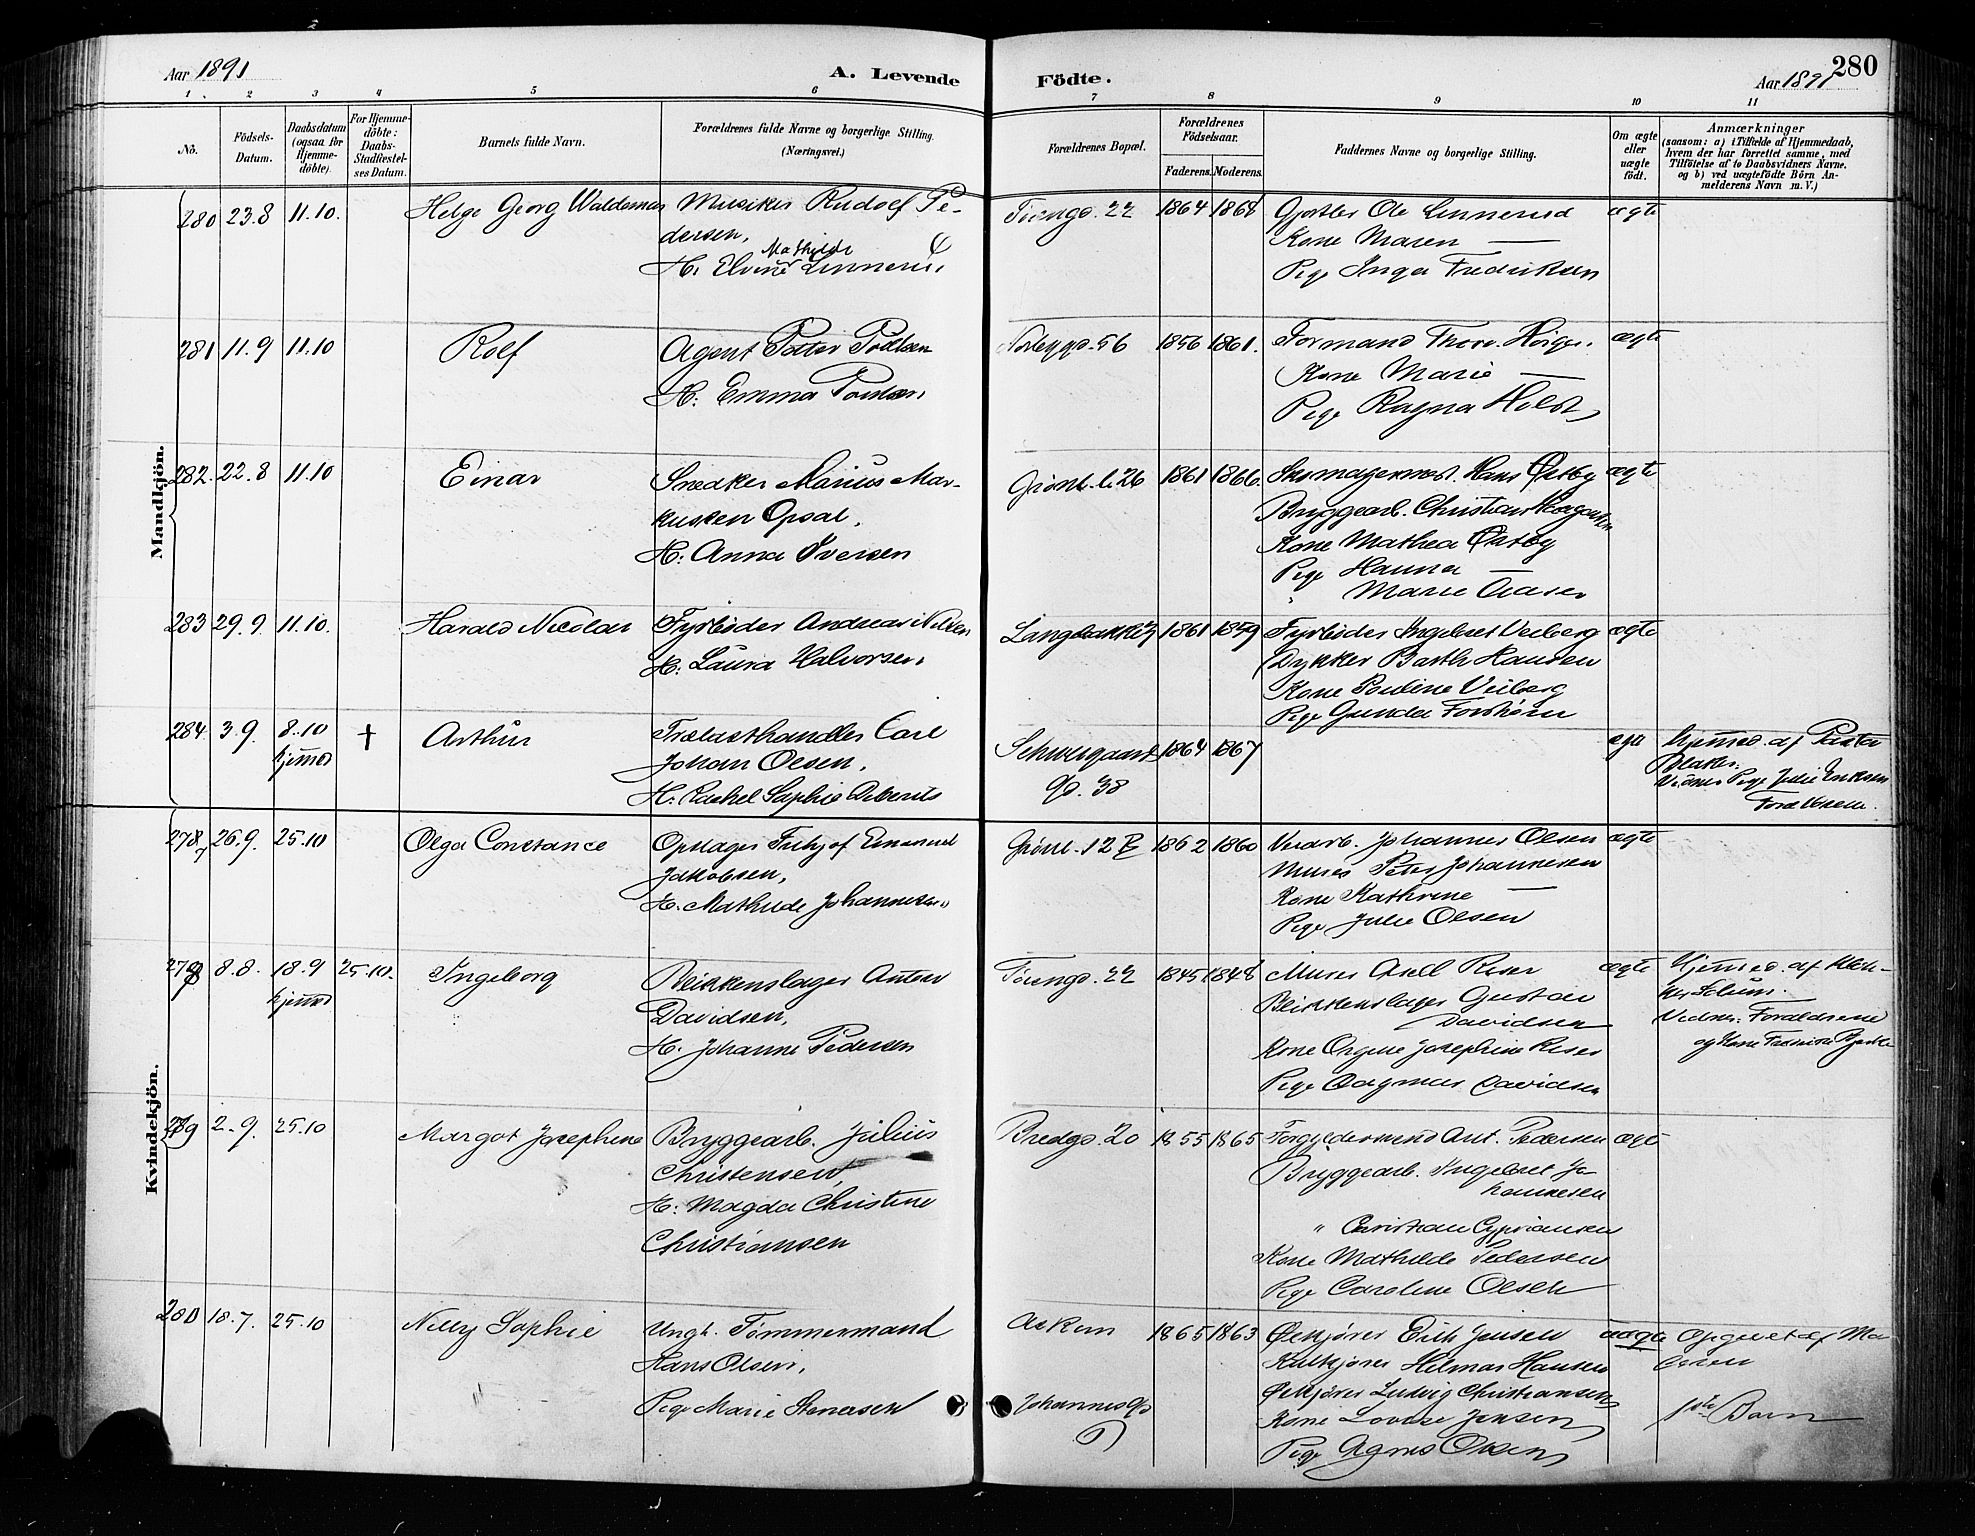 Aar 1891
A. Levende
Födte.
Aar 1891
280
1 2 3 4 5 6 7 8 9 10 11
No.
Födsels-Datum.
Daabsdatum (ogsaa for Hjemme-döbte).
For Hjemme-döbte: Daabs-Stadfæstel-ses Datum.
Barnets fulde Navn.
Forældrenes fulde Navne og borgerlige Stilling.
(Næringsvei.)
Forældrenes Bopæl.
Forældrenes Födselsaar.
Faderens. Moderens.
Faddernes Navne og borgerlige Stilling.
Om ægte eller uægte födt.
Anmærkninger
(saasom: a) i Tilfælde af Hjemmedaab, hvem der har forrettet samme, med Tilföielse af to Daabsvidners Navne, og b) ved uægtefödte Börn An-melderens Navn m. V.)
Mandkjön.
280 23.8 11.10. Helge Georg Waldemar Musiker Rudolf Pe-
dersen,
H. Elvine Mathilde Linnerud
22 1864 1868 Gjørtler Ole Linnerud ægte
Kone Maren —
Pige Inga Fredriksen
281 11.9 11.10 Rolf Agent Petter Poulsen
H. Emma Poulsen
56 1856 1861. Formand Thorv. ægte
Kone Marie —
Pige Ragna Holst
282. 22.8 11.10 Einar Snedker Marius Mar-
kusken Opsal,
H. Anna Iversen
Grønl. l. 26 1861 1866. Skomagermest. Hans Østby ægte
Bryggearb. Christian
Kone Mathea Østby
Pige Hanna —
" Marie Aasen
283 29.9. 11.10. Harald Nicolai Fyrbøder Andreas Nilsen
H. Laura Halvorsen
1861 1859 Fyrbøder Ingebret Veiberg ægte
Dykker Barth Hansen
Kone Pauline Veiberg
Pige Gunda
284. 3.9. 8.10 hjemmed † Arthur Trælasthandler Carl
Johan Olsen,
H. Rachel Sophie
Schweigaards
gd. 38 1864 1867 ægte Hjemmed. af Pastor
Vidner Pige Julie Eriksen
Forældrene.
Kvindekjön.
278 26.9. 25.10 Olga Constance Opsager Frithjof Emanuel
Jakobsen,
H. Mathilde Johannesen
Grønl. 12 1862 1860 Verarb. Johannes Olsen ægte
Murer Peter Johannesen
Kone Kathrine —
Pige Julie Olsen
278 8.8. 18.9 hjemmed 25.10. Ingeborg Blikkenslager Anton
Davidsen,
H. Johanne Pedersen
22 1845 1848 Murer Axel Riser ægte
Blikkenslager Gustav
Davidsen
Kone Josephine Riser
Pige Dagmar Davidsen
Hjemmed. af Klok-
ker
Vidner: Forældrene
og Kone
279 2.9. 25.10 Margot Josephine Bryggearb. Julius
Christensen,
H. Magda Christine
Christiansen
Bredgd. 20 1855 1865 Forgyldersvend Ant. Pedersen ægte
Bryggearb. Ingebret Jo-
hannesen
" Christian Cypriansen
Kone Mathilde Pedersen
Pige Caroline Olsen
280 18.7. 25.10 Nelly Sophie Ungk. Tømmermand
Hans Olsen,
Pige Marie Stenersen
Askim
Johannesgd
7 1865 1863 Ølkjører Erik Jensen uægte
Kulkjører Hilmar Hansen
Ølkjører Ludvig Christiansen
Kone Lovise Jensen
Pige Agnes Olsen
Opgivet af Mo-
deren
1ste Barn